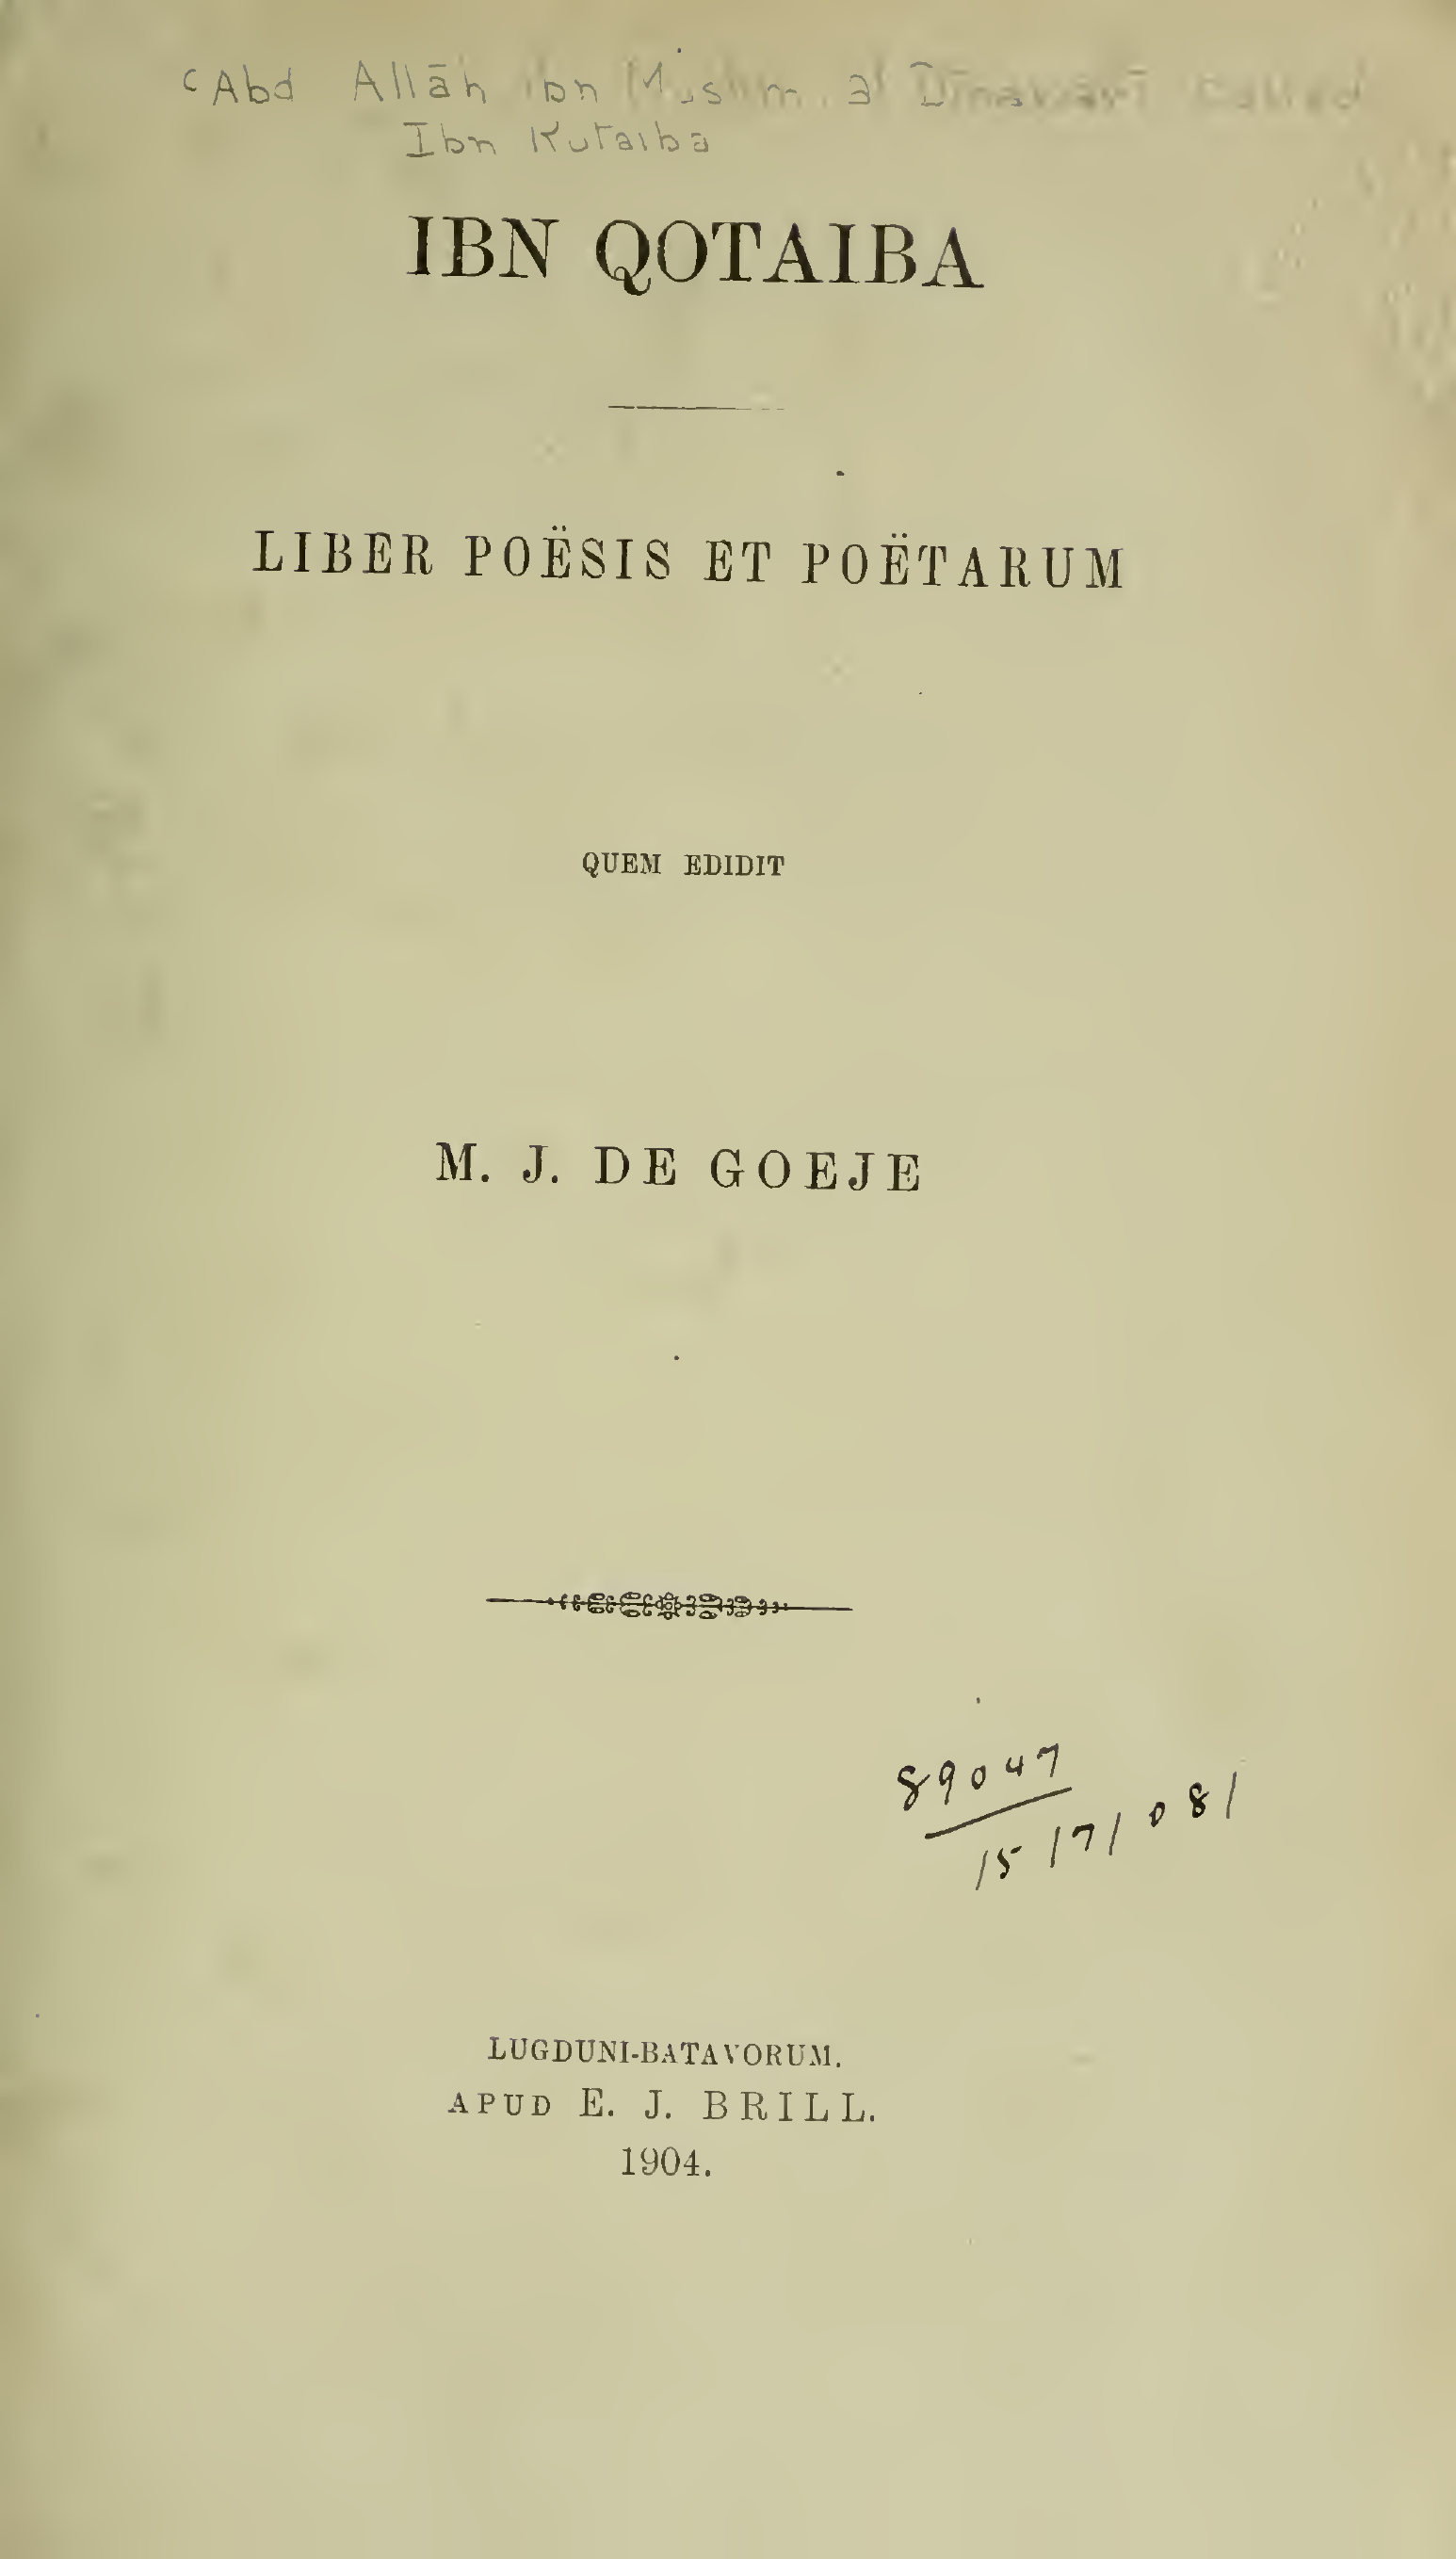 ʿAbd Allāh ibn Muslim, al Dīnawarī called
Ibn Kutaiba
IBN QOTAIBA
LIBER POËSIS ET POËTARUM
QUEM EDIDIT
M. J. DE GOEJE
89047
15/7/081
LUGDUNI-BATAVORUM.
APUD E. J. BRILL.
1904.